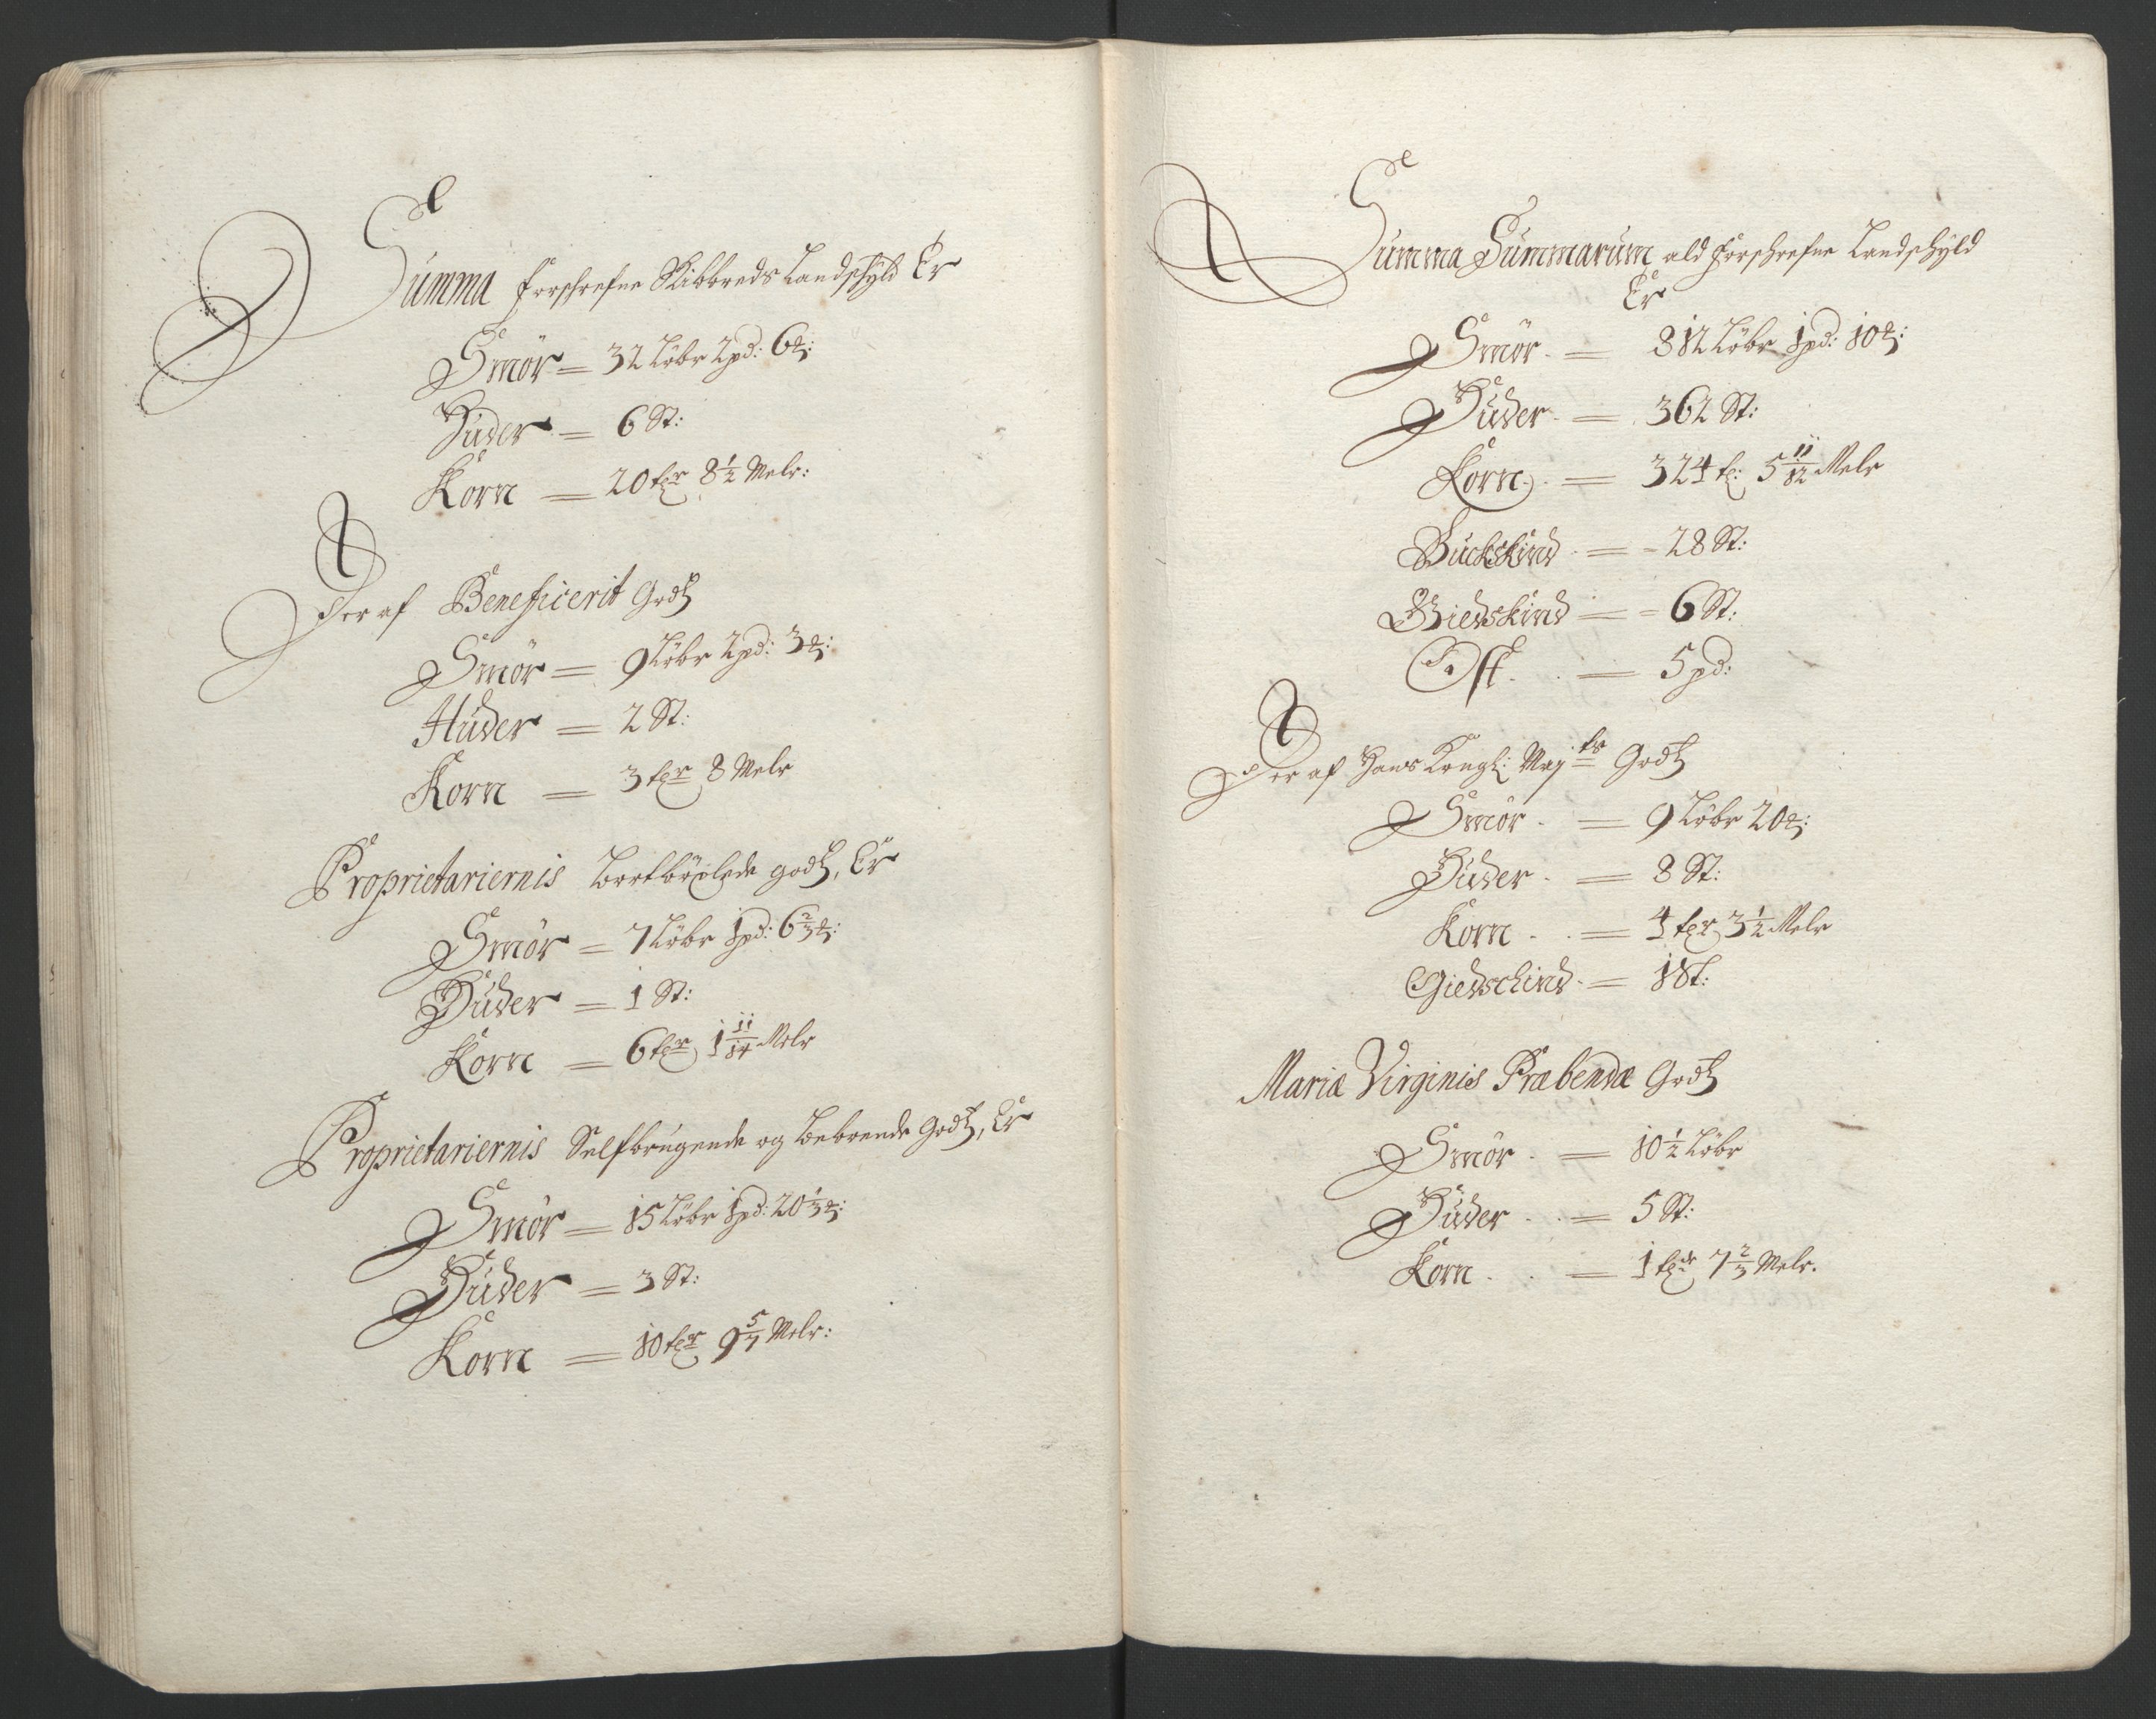 Summa forschrefne Skibbreds Landschyld Er
Smör = 32 Löbr 2 pd: 6 ℔:
Huder = 6 St:
Korn = 20 tr 8 1/2 Melr:
Der af Beneficerit Godtz
Smör = 9 Löbr 2 pd: 3 ℔:
Huder = 2 St:
Korn = 3 tr 8 Melr
Proprietariernis bortböxlede godtz, Er
Smör = 7 Löbr 1 pd: 6 2/3 ℔:
Huder = 1 St:
Korn = 6 tr 1 11/14 Melr
Proprietariernis Selfbrugende og beboende Godtz, Er
Smör = 15 Löbr 1 pd: 20 1/3 ℔:
Huder = 3 St:
Korn = 10 tr 9 5/7 Melr:
Summa Summarum ald forschrefne Landschyld
Er
Smör = 812 Löbr 1 pd: 10 ℔:
Huder = 362 St:
Korn = 324 t: 5 11/12 Melr
Buckskind = 28 St:
Giedskind = 6 St:
Ost = 5 pd:
Der af Hans Kongl: Maj ts Godtz
Smör = 9 Löbr 20 ℔:
Huder = 8 St:
Korn = 4 tr 3 1/2 Melr
Giedschind = 1 St:
Mariæ Virginis Præbendæ Godtz
Smör = 10 1/2 Löbr
Huder = 5 St:
Korn = 1 tde 7 2/3 Melr.